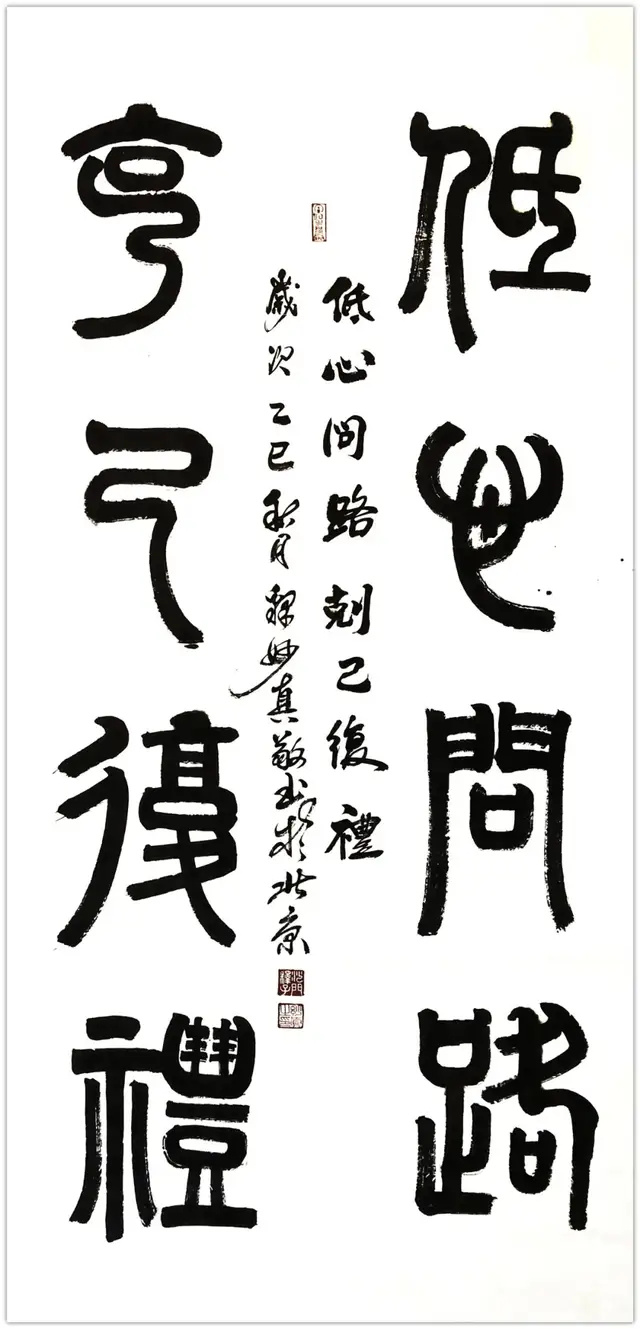 低心問路
克己復禮
低心问路剋己復禮
歲次乙巳秋月釋妙真敬书於北京